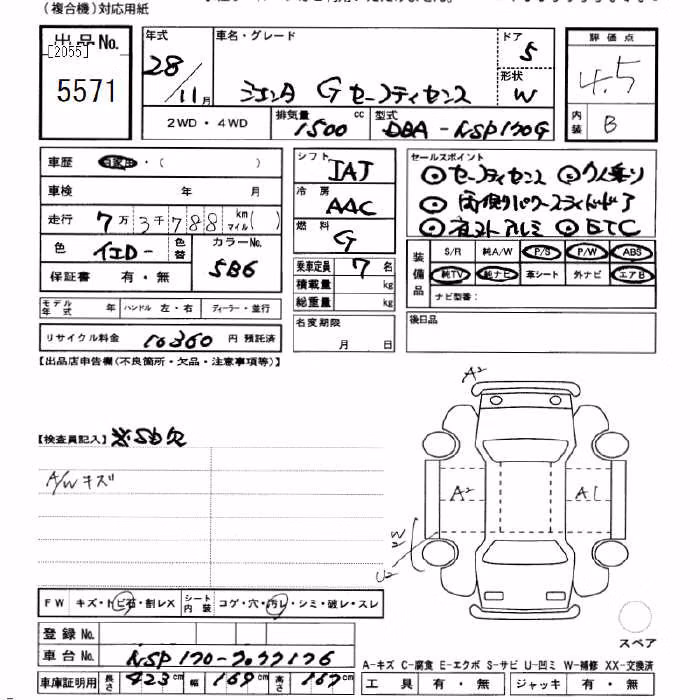 (複合機)対応用紙
出品No.
[2055]
5571
年式
28/11月
車名・グレード
シエンタ G セーフティセンス
ドア
5
形状
W
評価点
4.5
内装
B
2WD・4WD
排気量
1500 cc
型式
DBA-NSP170G
車歴
自家用・( )
車検 年 月
走行 7万3千788 km マイル( )
色
イエロー
色替
カラーNo.
5B6
保証書 有・無
モデル年式 年
ハンドル 左・右
ディーラー・並行
リサイクル料金 10360 円 預託済
シフト
IAT
冷房
AAC
燃料
G
乗車定員 7 名
積載量 kg
総重量 kg
名変期限
月 日
セールスポイント
◎セーフティセンス ◎7人乗り
◎両側パワースライドドア
◎社外アルミ ◎ETC
装備品
S/R 純A/W P/S P/W ABS
純TV 純ナビ 革シート 外ナビ エアB
ナビ型番:
後日品
【出品店申告欄(不良箇所・欠品・注意事項等)】
【検査員記入】
A/Wキズ
A2
A2
A1
W2
U2
FW キズ・トビ石・割レX
シート内装 コゲ・穴・汚レ・シミ・破レ・スレ
登録No.
車台No. NSP170-7077176
車庫証明用 長さ 423cm 幅 169cm 高さ 167cm
スペア
A-キズ C-腐食 E-エクボ S-サビ U-凹ミ W-補修 XX-交換済
工具 有・無
ジャッキ 有・無